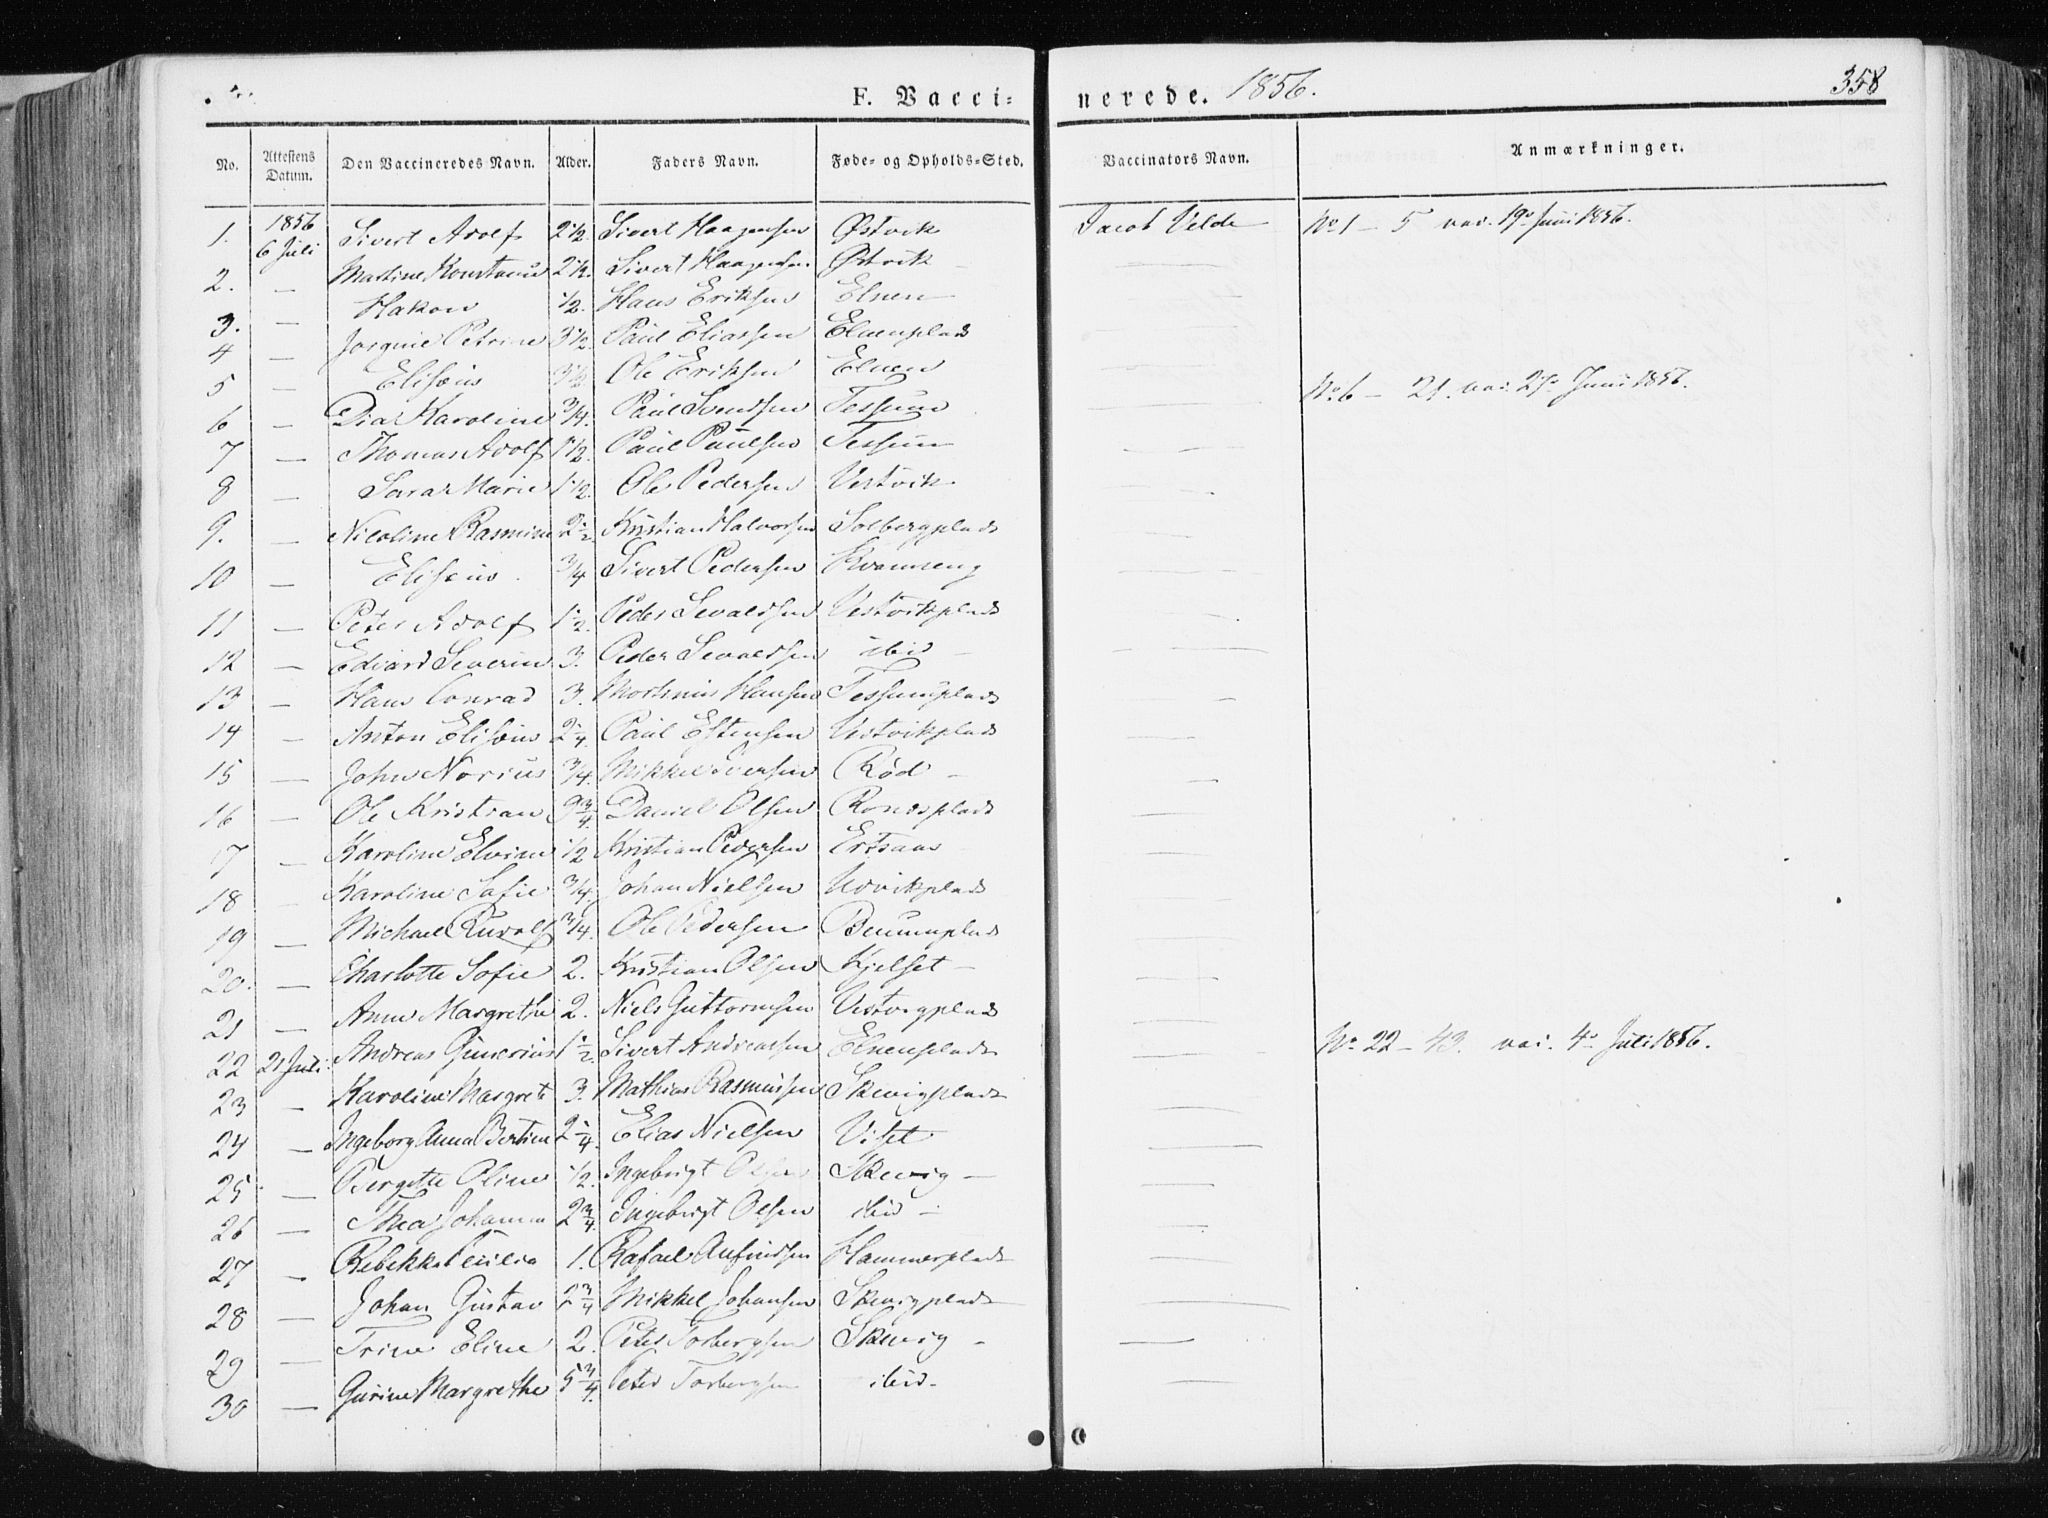 F. Vaccinerede. 1856. 358
No. Attestens Datum. Den Vaccineredes Navn. Alder. Faders Navn. Føde- og Opholds-Sted. Vaccinators Navn. Anmærkninger.
1. 1856 6 Juli Sivert Adolf 2 1/2. Sivert Haagensen Østvik Jacob Velde No 1 - 5 vac. 19de Juni 1856.
2. — Martine 2 1/2. Sivert Haagensen Østvik —
3. — Hakon 1/2. Hans Eriksen Elnen —
4 — Petrine 3 1/2. Paul Eliassen Elnenplads —
5 — Elisæus 3 1/2 Ole Eriksen Elnen —
6 — Karoline 3/4. Paul Svendsen Tessum — No. 6 - 21. vac. Juni 1856.
7 — Thomas Adolf 1 1/2. Paul Paulsen Tessum —
8 — Sara Marie 1 1/2. Ole Pedersen Vestvik —
9. — Nicoline Rasmine 2 1/2 Kristian Halvorsen Solbergplads —
10 — Elisæus. 3/4 Sivert Pedersen Kvamseng —
11 — Peter Adolf 1 1/2. Peder Sevaldsen Vestvikplads —
12 — Edvard Severin 3. Peder Sevaldsen ibid —
13 — Hans Conrad 3. Morthinus Hansen Tessumplads —
14 — Anton Elisæus 2 1/4. Paul Estensen Vestvikplads —
15 — John Norius 3/4. Mikkel Iversen Rød —
16 — Ole Kristian 9 3/4. Daniel Olsen —
17 — Karoline Elvine 1/2 Kristian Pedersen —
18 — Karoline Sofie 3/4. Johan Nielsen Udvikplads —
19 — Michael Rudolf 3/4. Ole Pedersen —
20. — Charlotte Sofie 2. Kristian Olsen Kjelset —
21 — Anne Margrethe 2. Niels Guttormsen Vestvigplads —
22 21 Juli. Andreas Gunerius 1 1/2. Sivert Andreassen Elnenplads — No. 22 - 43. vac. 4de Juli 1856.
23 — Karoline Margrete 3. Mathias Rasmussen Skevigplads —
24 — Ingeborg Anna 2 1/4. Elias Nielsen Viset —
25 — Bergette Oline 1/2. Ingebrigt Olsen Skevig —
26 — Thea Johanna 2 3/4. Ingebrigt Olsen ibid —
27 — Rebekka Cecilia 1. Rafael Anfindsen Hammerplads —
28 — Johan Gustav 2 3/4 Mikkel Johansen Skevigplads —
29 — Trine Eline 2. Peter Torbergsen Skevig —
30 — Gurine Margrethe 5 3/4. Peter Torbergsen ibid.